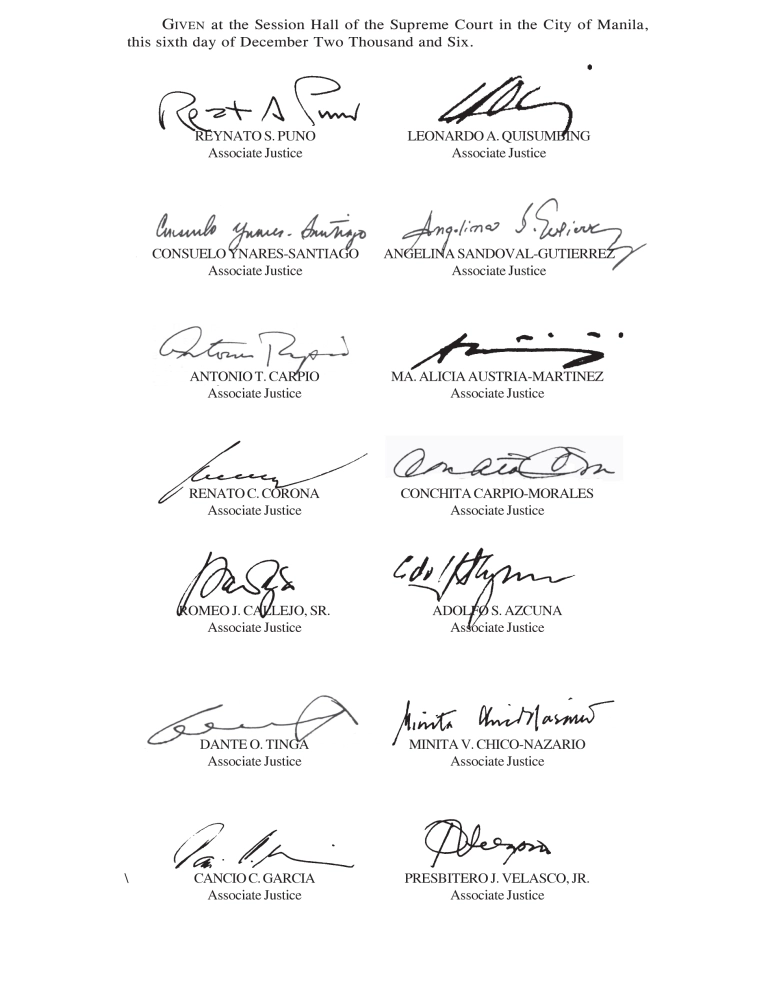 GIVEN at the Session Hall of the Supreme Court in the City of Manila,
this sixth day of December Two Thousand and Six.
REYNATO S. PUNO
Associate Justice
LEONARDO A. QUISUMBING
Associate Justice
Consuelo Ynares-Santiago
CONSUELO YNARES-SANTIAGO
Associate Justice
ANGELINA SANDOVAL-GUTIERREZ
Associate Justice
ANTONIO T. CARPIO
Associate Justice
MA. ALICIA AUSTRIA-MARTINEZ
Associate Justice
RENATO C. CORONA
Associate Justice
CONCHITA CARPIO-MORALES
Associate Justice
ROMEO J. CALLEJO, SR.
Associate Justice
ADOLFO S. AZCUNA
Associate Justice
DANTE O. TINGA
Associate Justice
MINITA V. CHICO-NAZARIO
Associate Justice
\
CANCIO C. GARCIA
Associate Justice
PRESBITERO J. VELASCO, JR.
Associate Justice